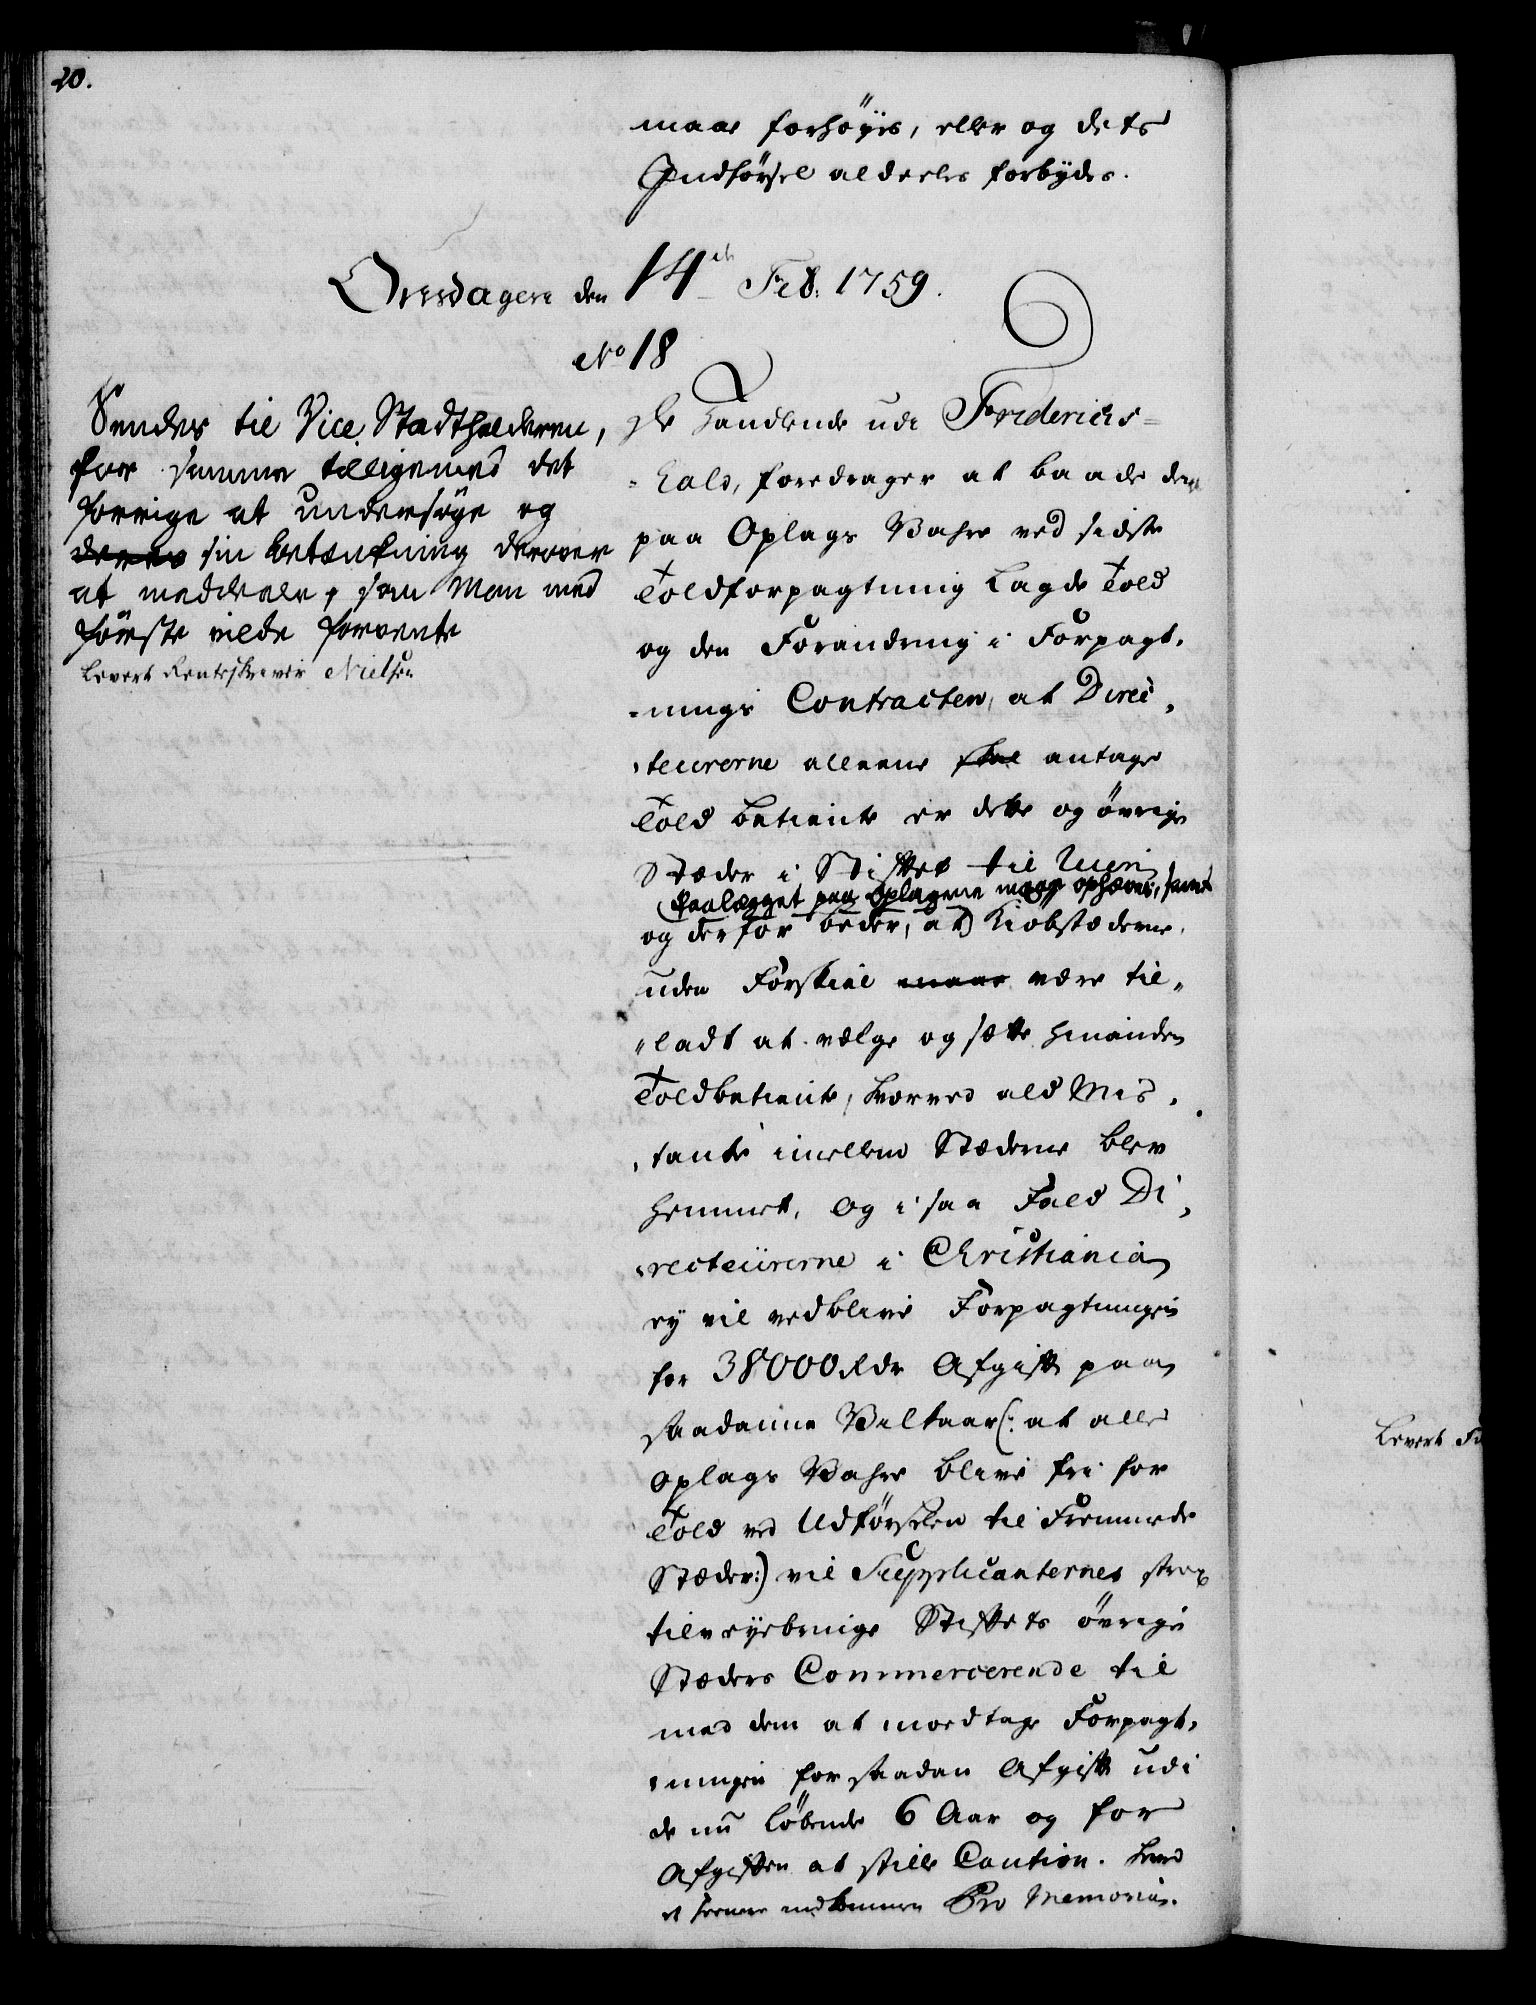 20.
maae forhøyes, eller og dets
Indførsel alderles forbydes.
Onsdagen den 14de Feb: 1759.
No 18
Sendes til Vice Stadtholderen,
for samme tilligemed det
forrige at undersøge og
deres sin betænkning derover
at meddeele, som Man med
første vilde forvente
Levert Renteskriver Nielsen
De Handlende udi Friderichs=
=hald, foredrager at baade den
paa Oplags Vahre ved sidste
Toldforpagtning lagde Told
og den Forandring i Forpagt,
=nings Contracten, at Direc,
,teurerne alleene skal antage
Told betiente er dette og øvrige
Stæder i Stiftet til Ruin
(Paalægget paa Oplagene maae ophæves, samt
og derfor beder, at) Kiøbstæderne
uden Forskiel maae være til,,
,,ladt at vælge og sætte hinanden
Toldbetiente, hvorved ald Mis,
,tanke imellem Stæderne blev
hemmet, og i saa Fald Di,
,recteurerne i Christiania
ey vil vedblive Forpagtningen
for 38000 Rdr Afgift paa
saadanne Vilkaar (: at alle
Oplags Vahre blive fri for
Told ved Udførselen til Fremmede
Stæder:) vil Supplicanternes strax
tilveyebringe Stiftets øvrige
Stæders Commercerende til
med dem at modtage Forpagt,
,ningen for saadan Afgift udi
de nu løbende 6 Aar og for
Afgiften at stille Caution. hvad
et herom indkommen Pro Memoria.
Levert